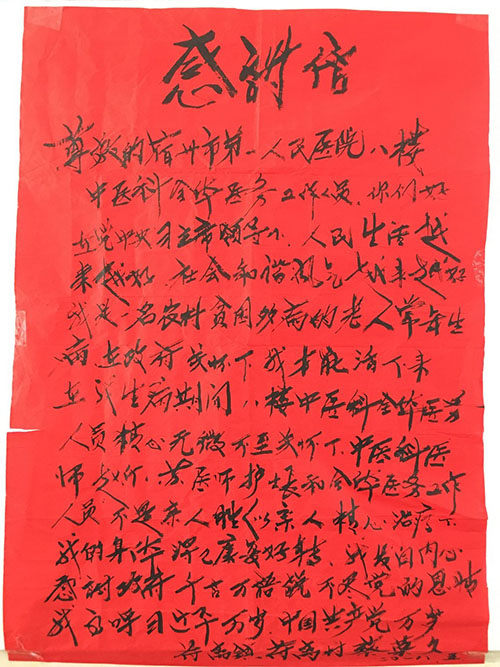 感謝信
尊敬的宿州市第一人民医院八楼
中医科全体医务工作人员，你们好
在党中央习主席领导下，人民生活越
来越好，社会和谐风气越来越好
我是一名农村贫困多病的老人常年生
病在政府关怀下我才能活下来
在我生病期间八楼中医科全体医务
人员精心无微不至关怀下，中医科医
师赵，苏医师护士长和全体医务工作
人员不是亲人胜似亲人精心治疗下
我的身体得已康复好转，我发自内心
感謝政府千言万语说不尽党的恩情
我高呼习近平万岁中国共产党万岁